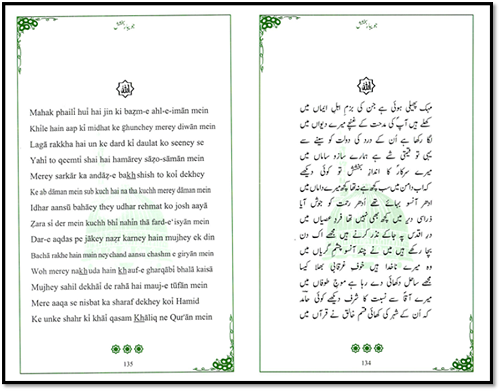 الله
Mahak phailî huî hai jin ki bazm-e ahl-e-imân mein
Khile hain aap kî midhat ke ghunchey merey diwân mein
Lagâ rakkha hai un ke dard kî daulat ko seeney se
Yahî to qeemtî shai hai hamârey sâzo-sâmân mein
Merey sarkâr ka andâz-e bakhshish to koî dekhey
Ke ab dâman mein sub kuch hai na tha kuchh merey dâman mein
Idhar aansû bahâey they udhar rehmat ko josh aayâ
Zara sî der mein kuchh bhî nahîn thâ fard-e'isyân mein
Dar-e aqdas pe jâkey nazr karney hain mujhey ek din
Bachâ rakhe hain main ney chand aansu chashm e giryân mein
Woh merey nakhuda hain khauf-e gharqâbî bhalâ kaisâ
Mujhey sahil dekhâî de rahâ hai mauj-e tûfân mein
Mere aaqa se nisbat ka sharaf dekhey koî Hamid
Ke unke shahr kî khâî qasam Khâliq ne Qur'ân mein
135
الله
مہک پھیلی ہوئی ہے جن کی بزم اہل ایماں میں
کھلے ہیں آپؐ کی مدحت کے غنچے میرے دیواں میں
لگا رکھا ہے اُن کے درد کی دولت کو سینے سے
یہی تو قیمتی شے ہے ہمارے سازو ساماں میں
میرے سرکارؐ کا اندازِ بخشش تو کوئی دیکھے
کہ اب دامن میں سب کچھ ہے نہ تھا کچھ میرے داماں میں
ادھر آنسو بہائے تھے اُدھر رحمت کو جوش آیا
ذرا سی دیر میں کچھ بھی نہیں تھا فردِ عصیاں میں
درِ اقدس پہ جاکے نذر کرنے ہیں مجھے اک دن
بچا رکھے ہیں میں نے چند آنسو چشمِ گریاں میں
وہ میرے ناخدا ہیں خوفِ غرقابی بھلا کیسا
مجھے ساحل دکھائی دے رہا ہے موجِ طوفاں میں
میرے آقاؐ سے نسبت کا شرف دیکھے کوئی حامدؔ
کہ اُن کے شہر کی کھائی قسم خالق نے قرآں میں
134